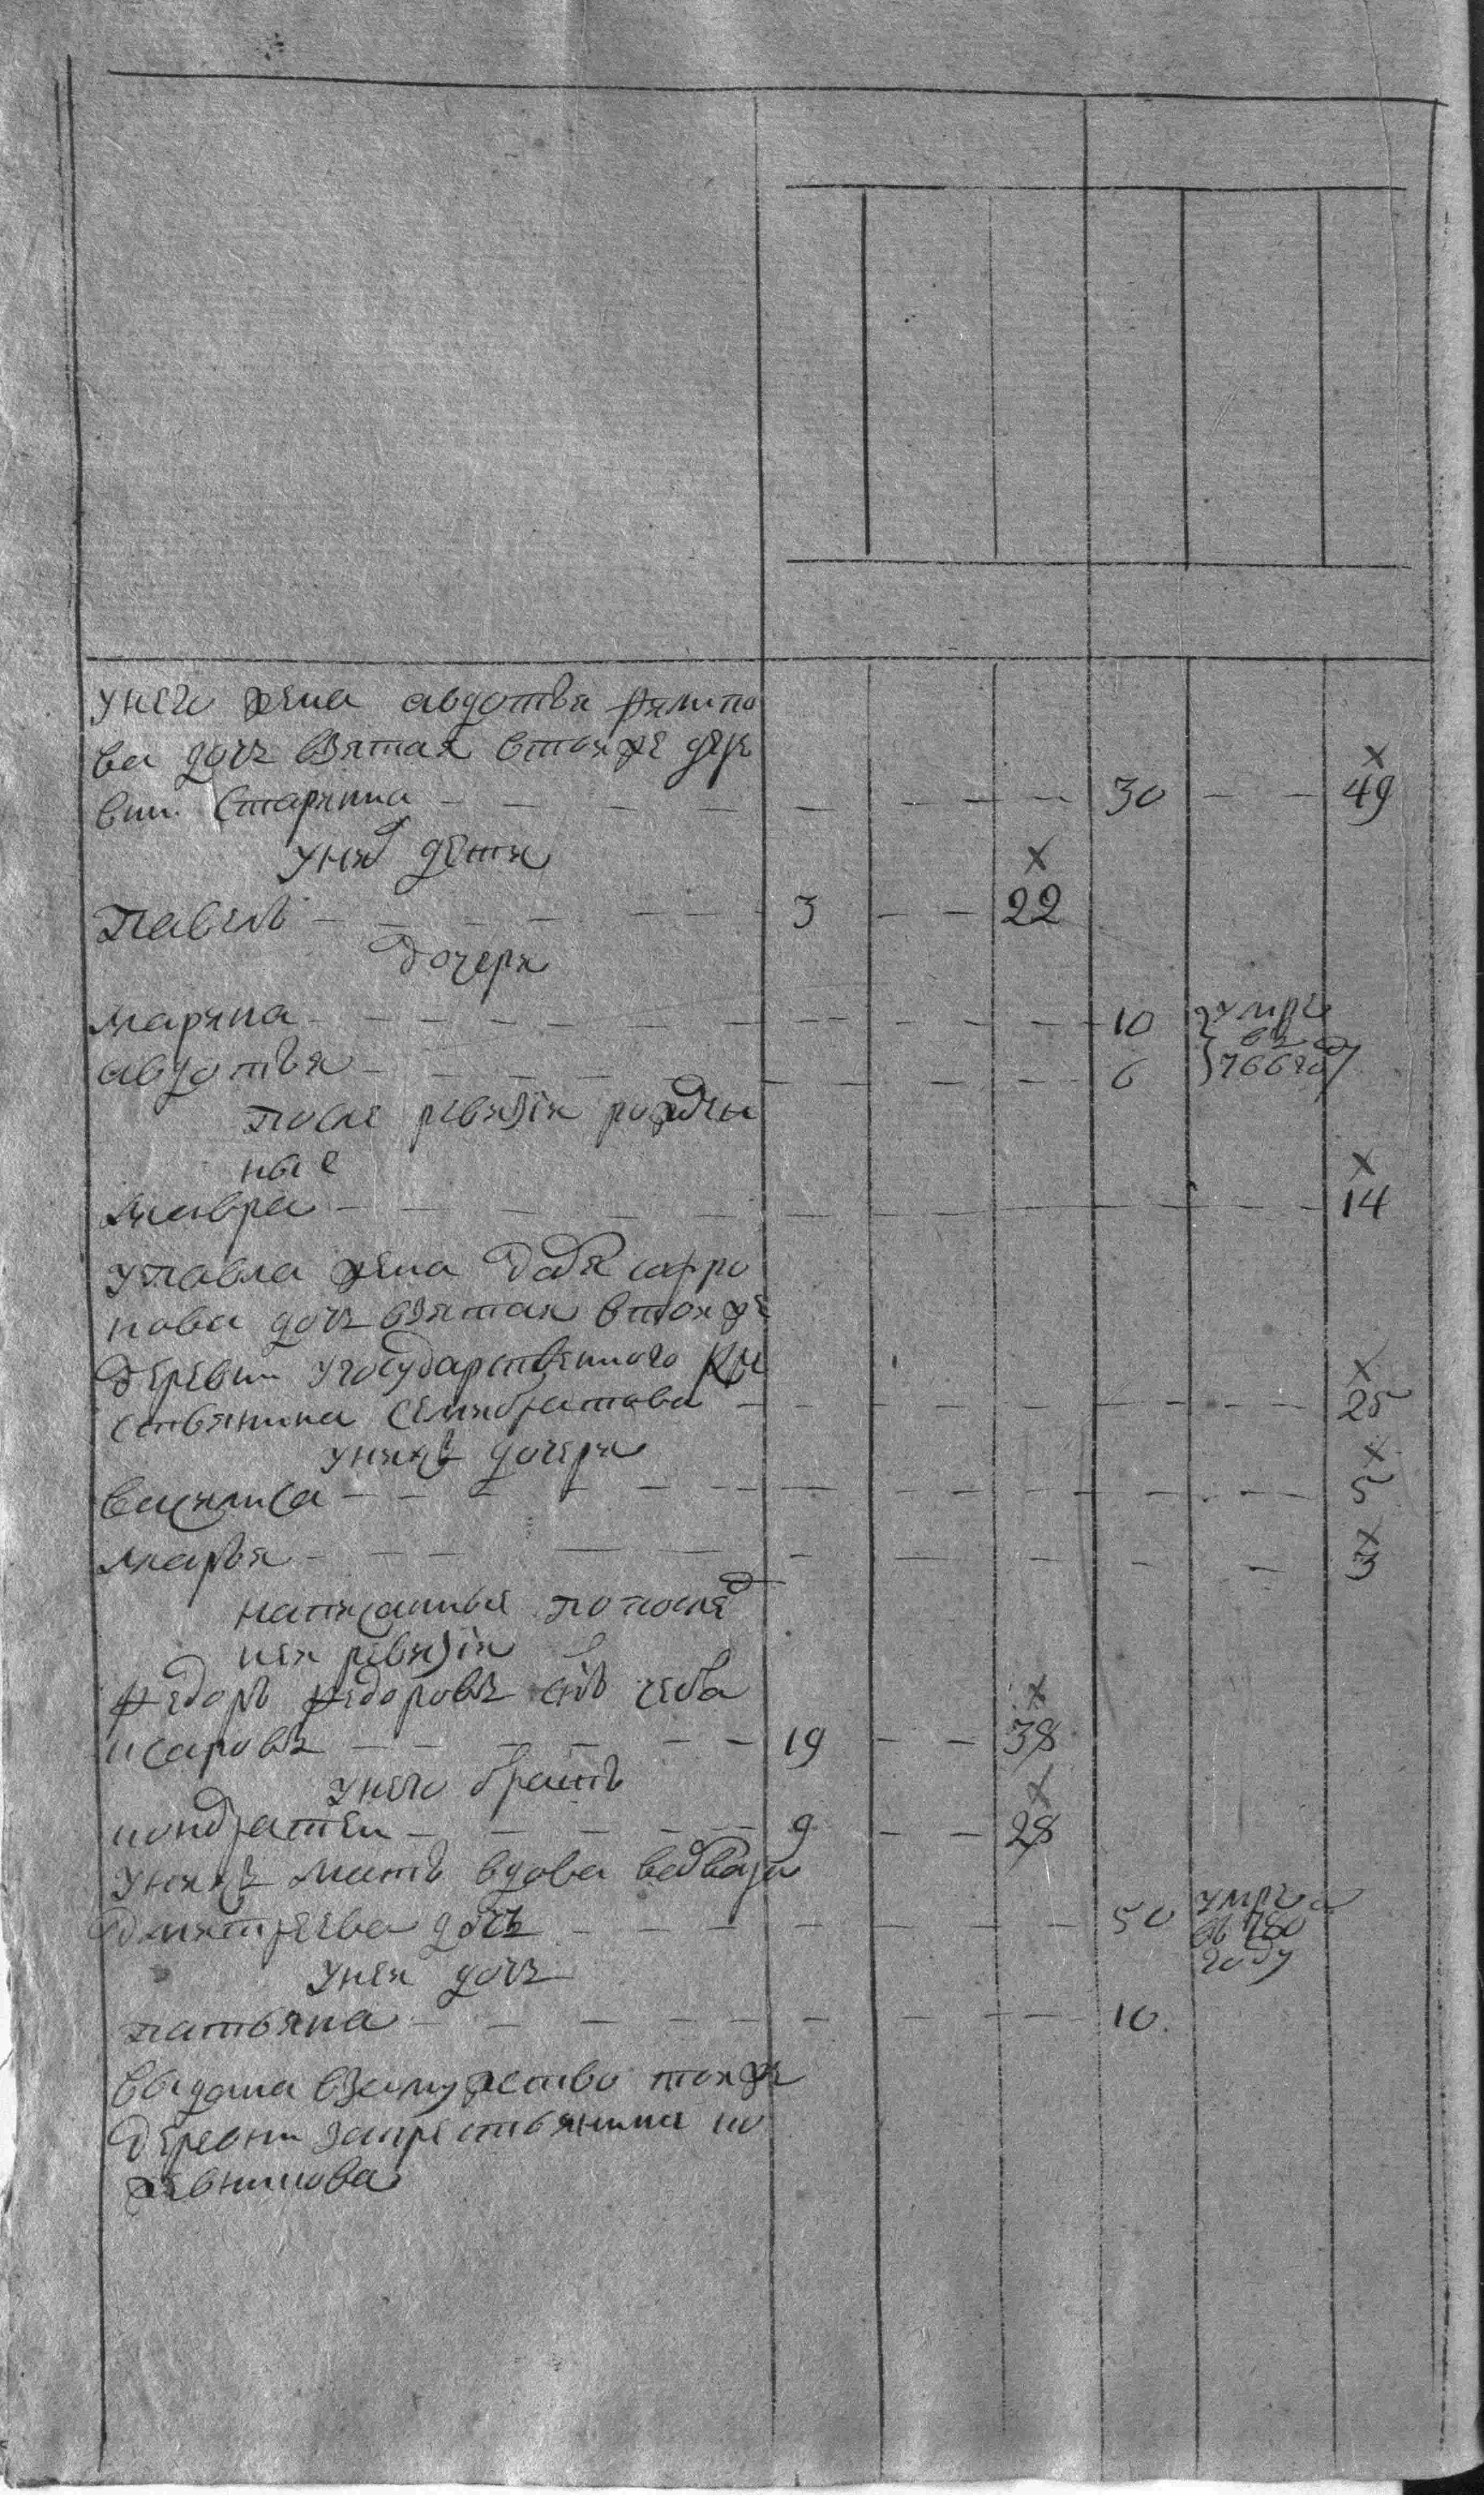 унего жена авдотья филипо
ва дочь взятая втой же дере
вни Старинна 30 49
униⷯ дети
Павелъ 3 22
дочери
Марина 10 умре
въ
авдотья 6 766 году
после ревизiи рожден
ные
Мавра 14
упавла жена дадя сафро
нова дочь взятая втой же
деревни угосударственного кре
стьянина Семибратова 25
унихъ дочери
василиса 5
Марья 3
написанные по послеⷣ
ней ревизiи
федоръ федоровъ сн҃ъ чеба
ксаровъ 19 38
унего братъ
кондратей 9 28
унихъ мать вдова
дмитреева дочь 50 умре
въ 780
году
уней дочь
татьяна 10
выдана взамужство той же
деревни закрестьянина ко
жевникова